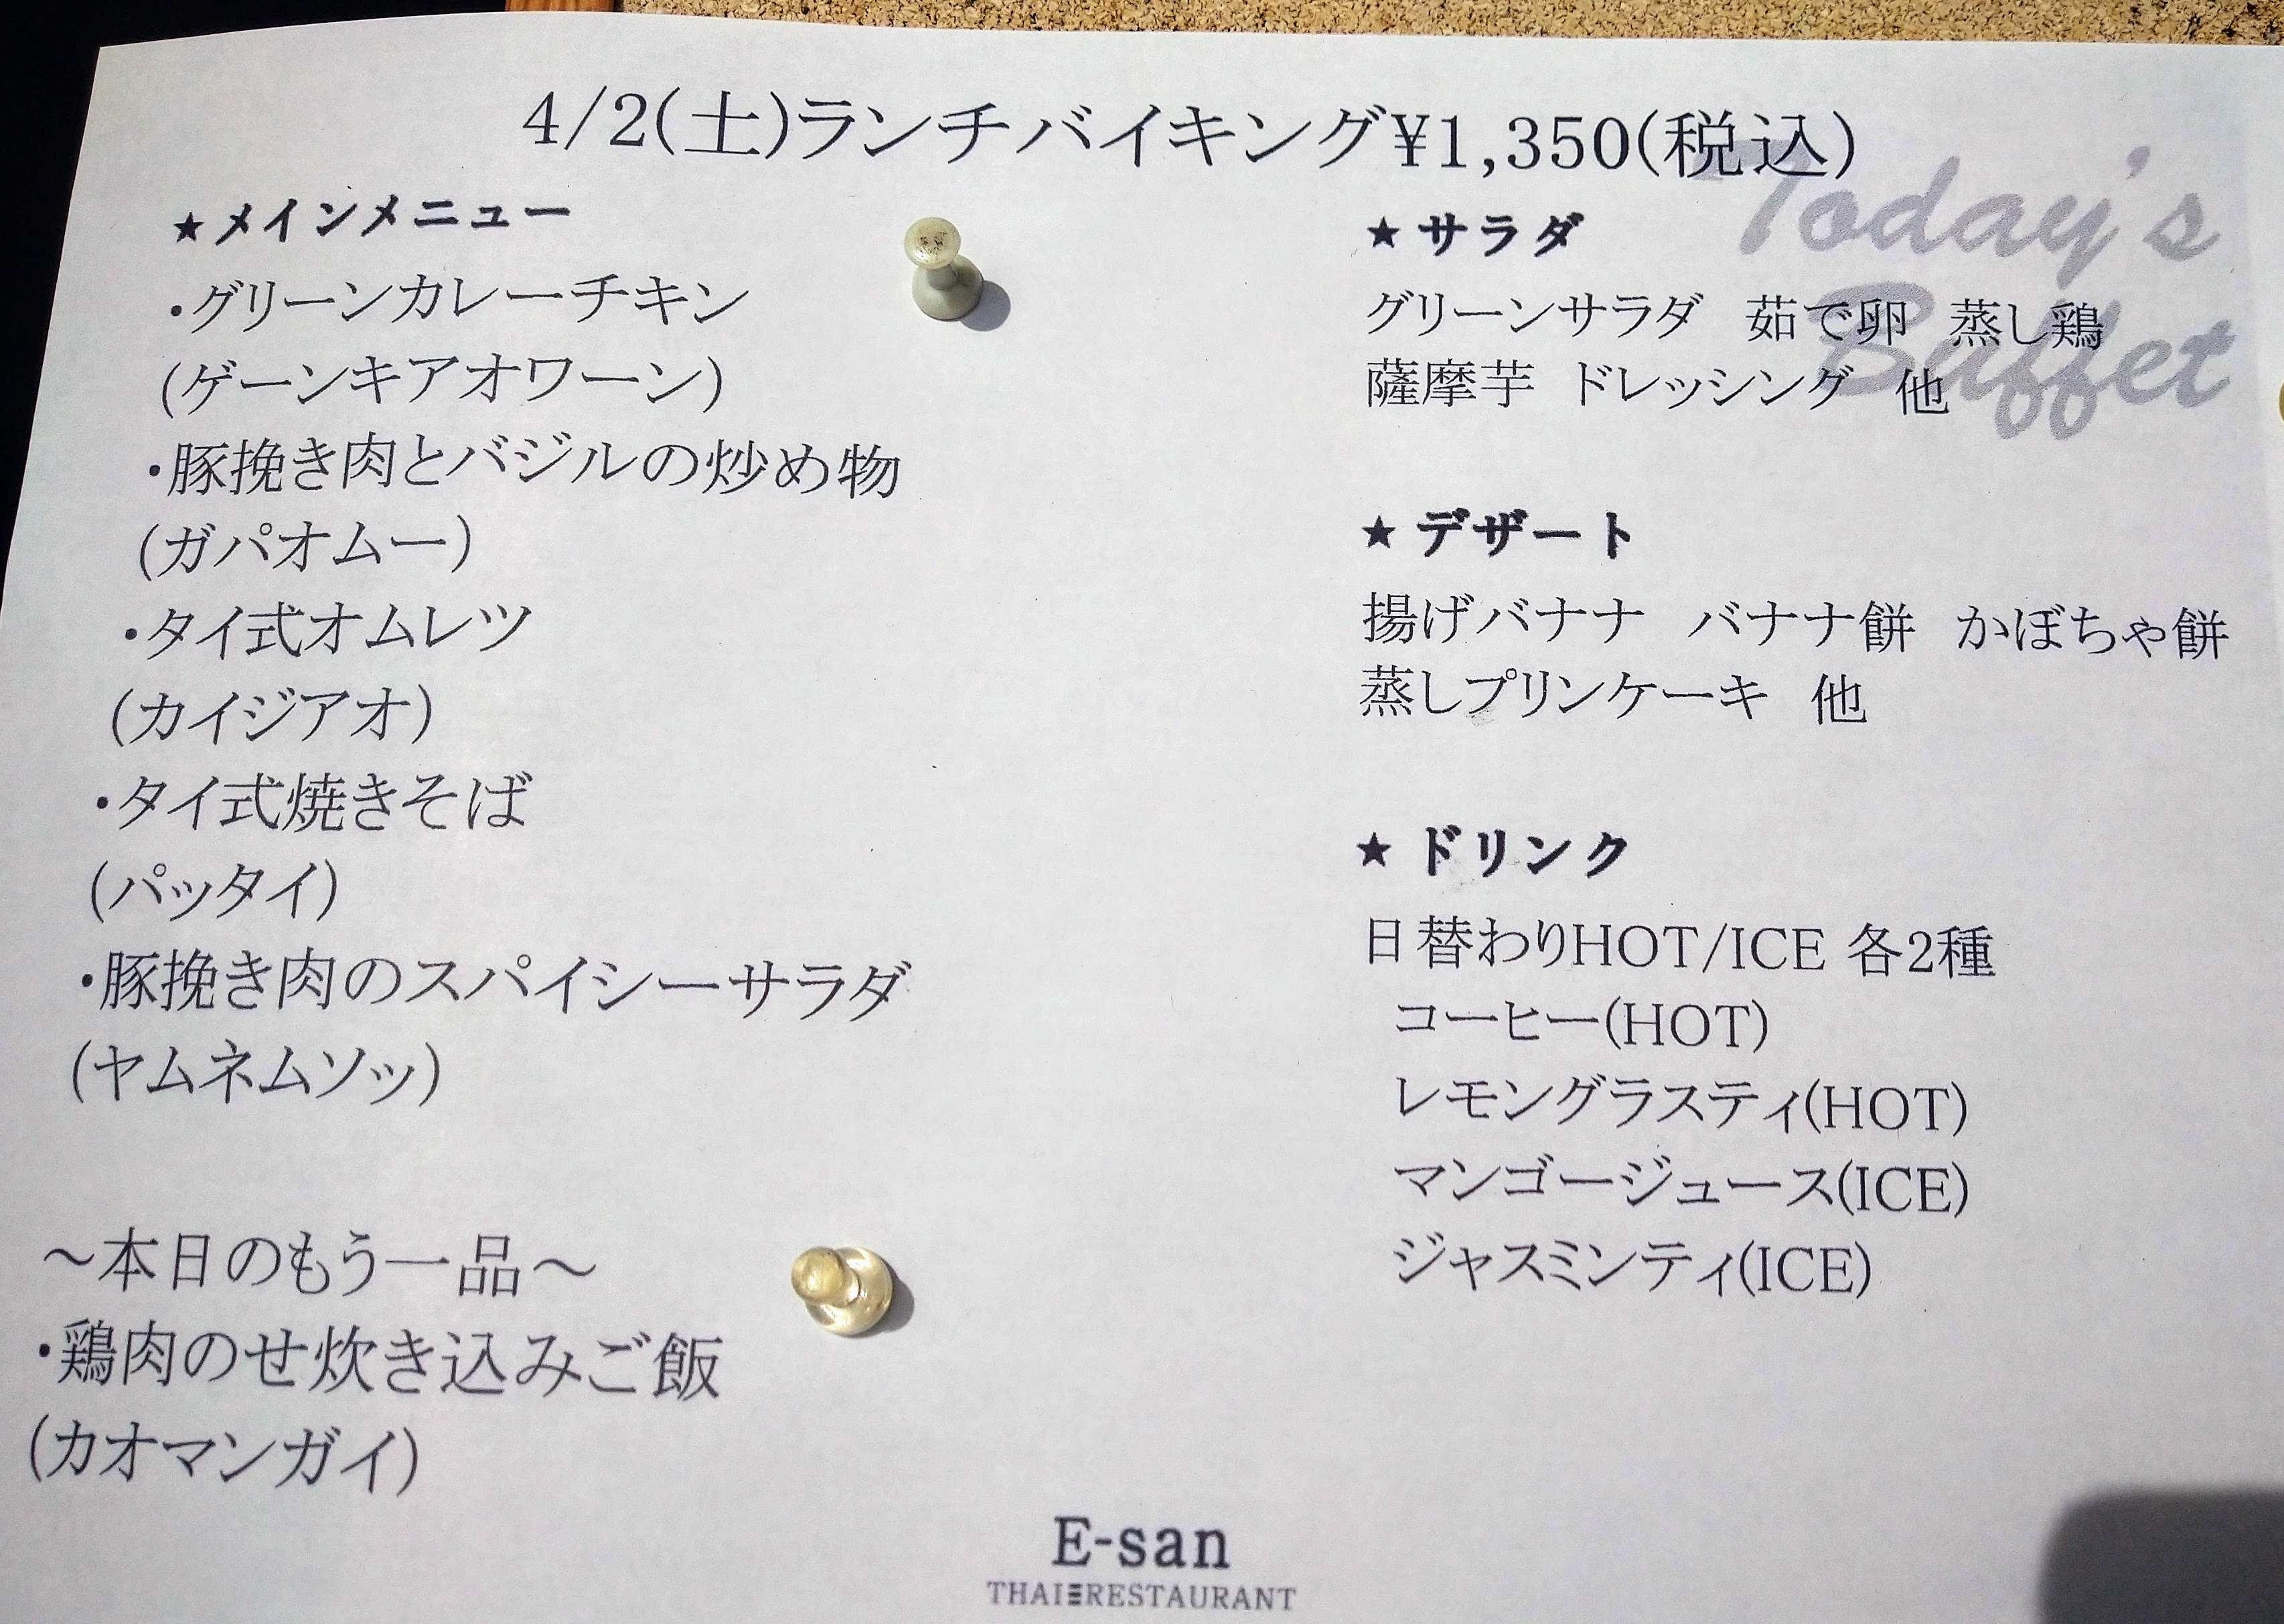 4/2(土)ランチバイキング¥1,350(税込)
Today's
Buffet
★メインメニュー
・グリーンカレーチキン
(ゲーンキアオワーン)
・豚挽き肉とバジルの炒め物
(ガパオムー)
・タイ式オムレツ
(カイジアオ)
・タイ式焼きそば
(パッタイ)
・豚挽き肉のスパイシーサラダ
(ヤムネムソッ)
～本日のもう一品～
・鶏肉のせ炊き込みご飯
(カオマンガイ)
★サラダ
グリーンサラダ 茹で卵 蒸し鶏
薩摩芋 ドレッシング 他
★デザート
揚げバナナ バナナ餅 かぼちゃ餅
蒸しプリンケーキ 他
★ドリンク
日替わりHOT/ICE 各2種
コーヒー(HOT)
レモングラスティ(HOT)
マンゴージュース(ICE)
ジャスミンティ(ICE)
E-san
THAI RESTAURANT